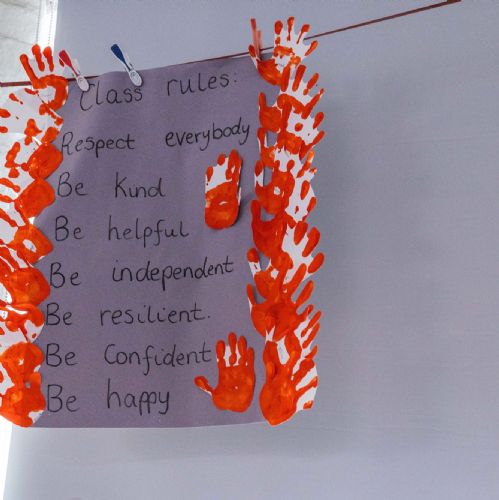 Class rules:
Respect everybody
Be Kind
Be helpful
Be independent
Be resilient.
Be Confident
Be happy